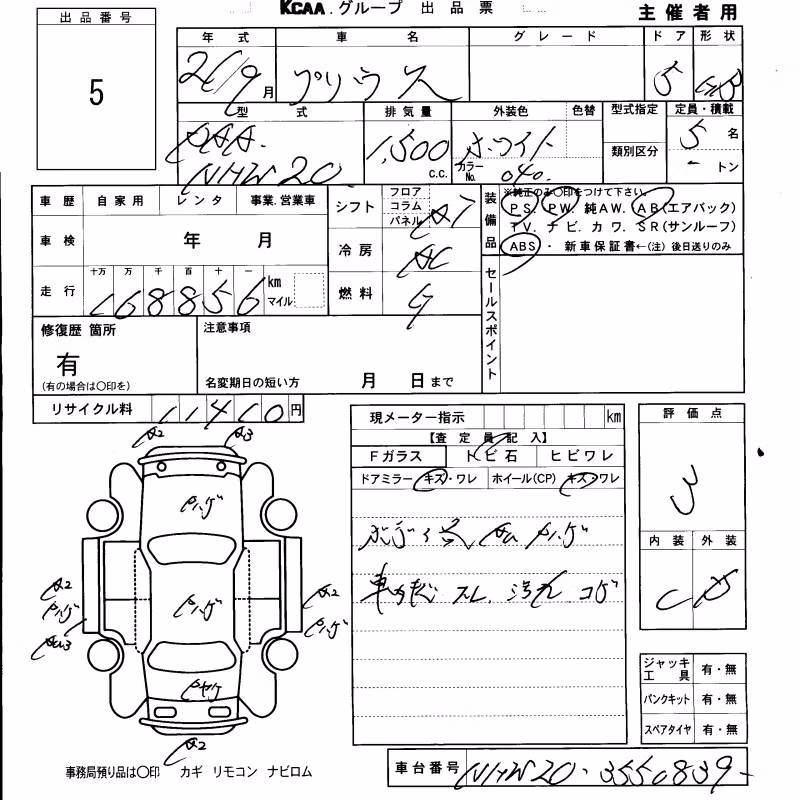 KCAA.グループ 出品票
主催者用
出品番号
5
年式 車名 グレード ドア 形状
21/9月 プリウス 5 HB
型式 排気量 外装色 色替 型式指定 定員・積載
DAA-
NHW20 1,500 c.c. ホワイト 類別区分 5 名
カラーNo. 040 - トン
車歴 自家用 レンタ 事業.営業車
シフト フロア コラム パネル AT
装備品 ※純正のみ○印をつけて下さい。
PS. PW. 純AW. AB(エアバック)
TV. ナビ. カワ. SR(サンルーフ)
ABS・ 新車保証書←(注)後日送りのみ
車検 年 月
冷房 AC
セールスポイント
十万 万 千 百 十 一
走行 168856 km マイル
燃料 G
修復歴 箇所 注意事項
有
(有の場合は○印を) 名変期日の短い方 月 日まで
リサイクル料 11410円
現メーター指示 km
評価点
3
【査定員記入】
Fガラス トビ石 ヒビワレ
ドアミラー キズ・ワレ ホイール(CP) キズ・ワレ
A2 A3
ハゲ
ハゲ
A2
ハゲ
A2
ハゲ
A2
内装 外装
C D
車内 スレ 汚れ コゲ
ジャッキ工具 有・無
パンクキット 有・無
スペアタイヤ 有・無
事務局預り品は○印 カギ リモコン ナビロム
車台番号 NHW20-3550839-